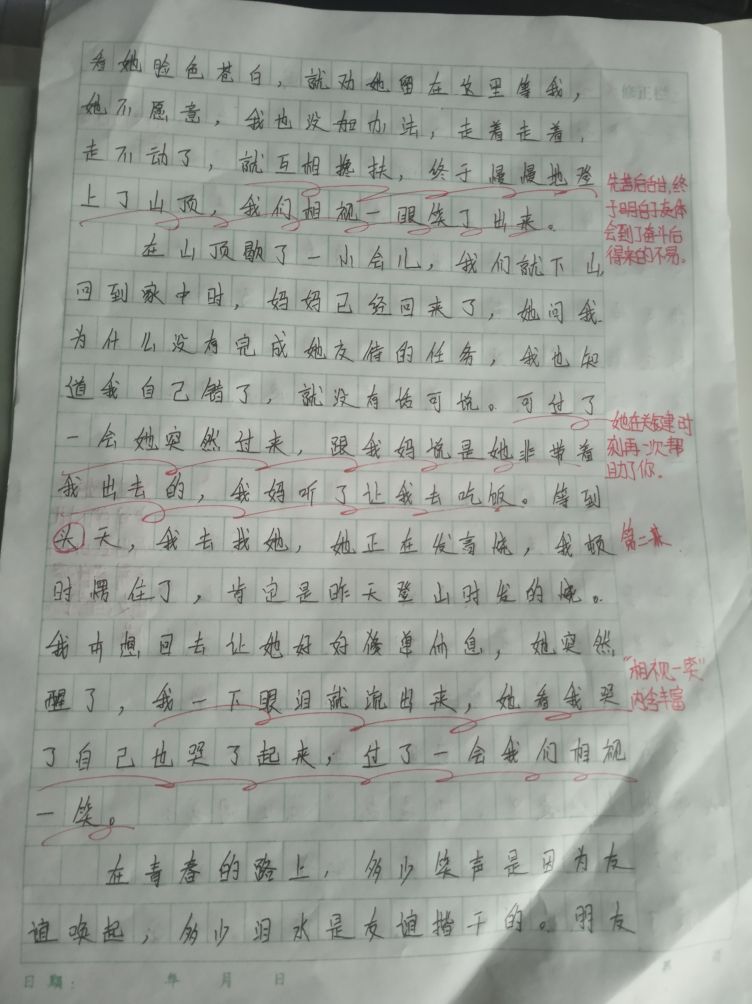 看她脸色苍白，就劝她留在这里等我，
修正栏
她不愿意，我也没如办法，走着走着，
走不动了，就互相搀扶，终于慢慢地登
上了山顶，我们相视一眼笑了出来。
先苦后甜，终
于明白了
会到了奋斗后
得来的不易。
在山顶歇了一小会儿，我们就下山，
回到家中时，妈妈已经回来了，她问我
为什么没有完成她交待的任务，我也知
道我自己错了，就没有话可说。可过了
一会她突然过来，跟我妈说是她非带着
我出去的，我妈听了让我去吃饭。等到
她在关键时
刻再一次帮
助了你。
头天，我去找她，她正在发高烧，我顿
第二天
时愣住了，肯定是昨天登山时发的烧。
我本想回去让她好好休息，她突然
醒了，我一下眼泪就流出来，她看我哭
"相视一笑"
内含丰富
了自己也哭了起来，过了一会我们相视
一笑。
在青春的路上，多少笑声是因为友
谊唤起，多少泪水是友谊擦干的。朋友
日期：　年　月　日